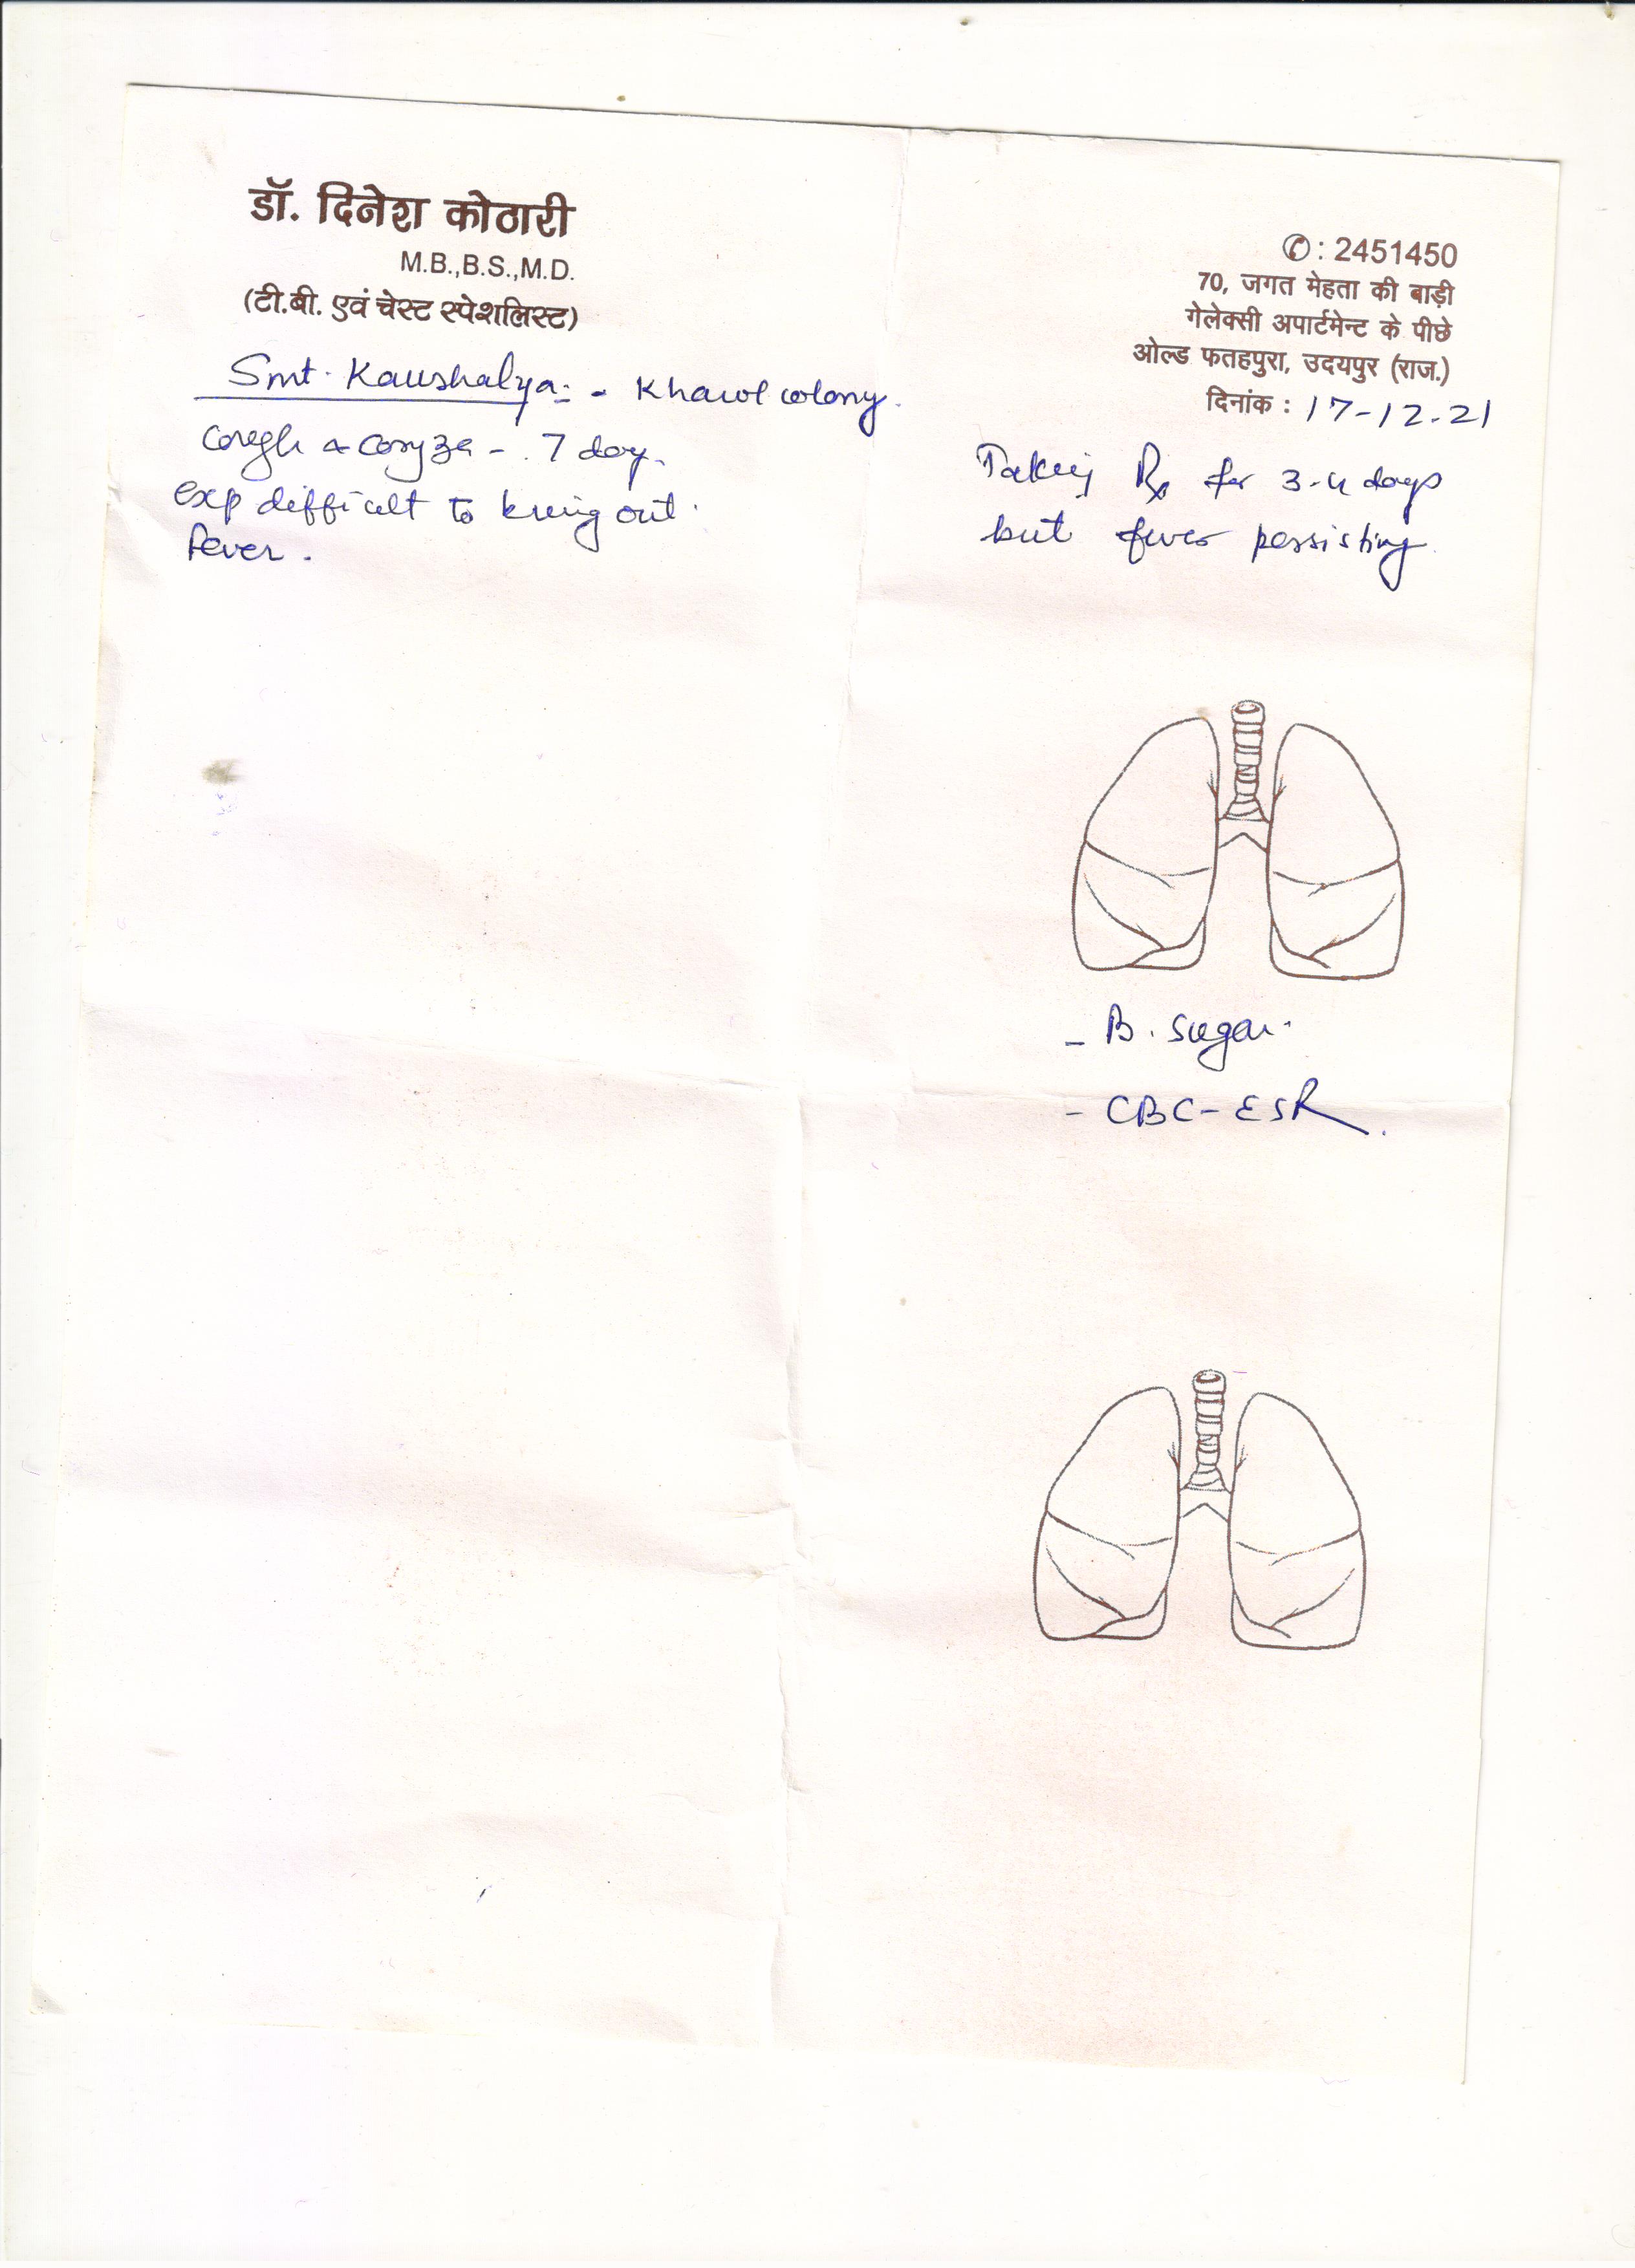 डॉ. दिनेश कोठारी
M.B.,B.S.,M.D.
(टी.बी. एवं चेस्ट स्पेशलिस्ट)
✆: 2451450
70, जगत मेहता की बाड़ी
गेलेक्सी अपार्टमेन्ट के पीछे
ओल्ड फतहपुरा, उदयपुर (राज.)
दिनांक : 17-12-21
Smt. Kaushalya - colony.
Cough & Coryza - 7 day.
exp difficult to bring out.
fever.
Taking Rx for 3-4 days
but fever persisting
- B. Sugar.
- CBC - ESR.